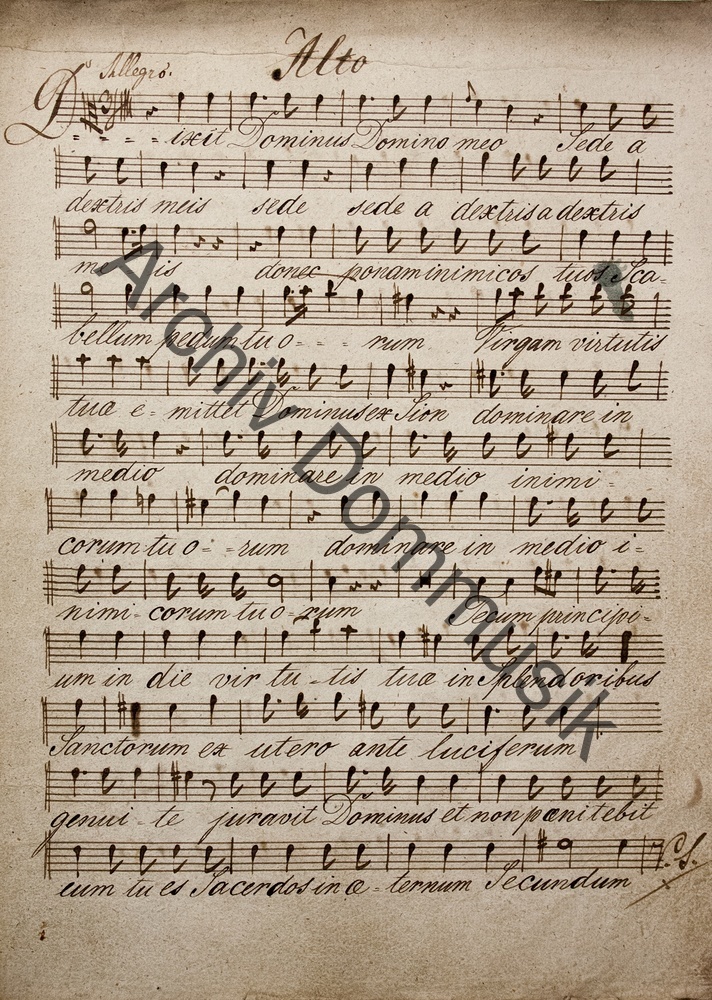 Alto
Allegro.
Dixit Dominus Domino meo Sede a
dextris meis sede sede a dextris a dextris
me is donec ponam inimicos tuos Sca=
bellum pedum tuo - - - rum Virgam virtutis
tuæ e= mittet Dominus ex Sion dominare in
medio dominare in medio inimi-
corum tuo= =rum dominare in medio i=
nimi- corum tuo= rum Tecum principi=
um in die vir tu - tis tuæ in Splendoribus
Sanctorum ex utero ante luciferum
genui - te juravit Dominus et non pænitebit
eum tu es Sacerdos in æ= ternum Secundum
Archiv Dommusik